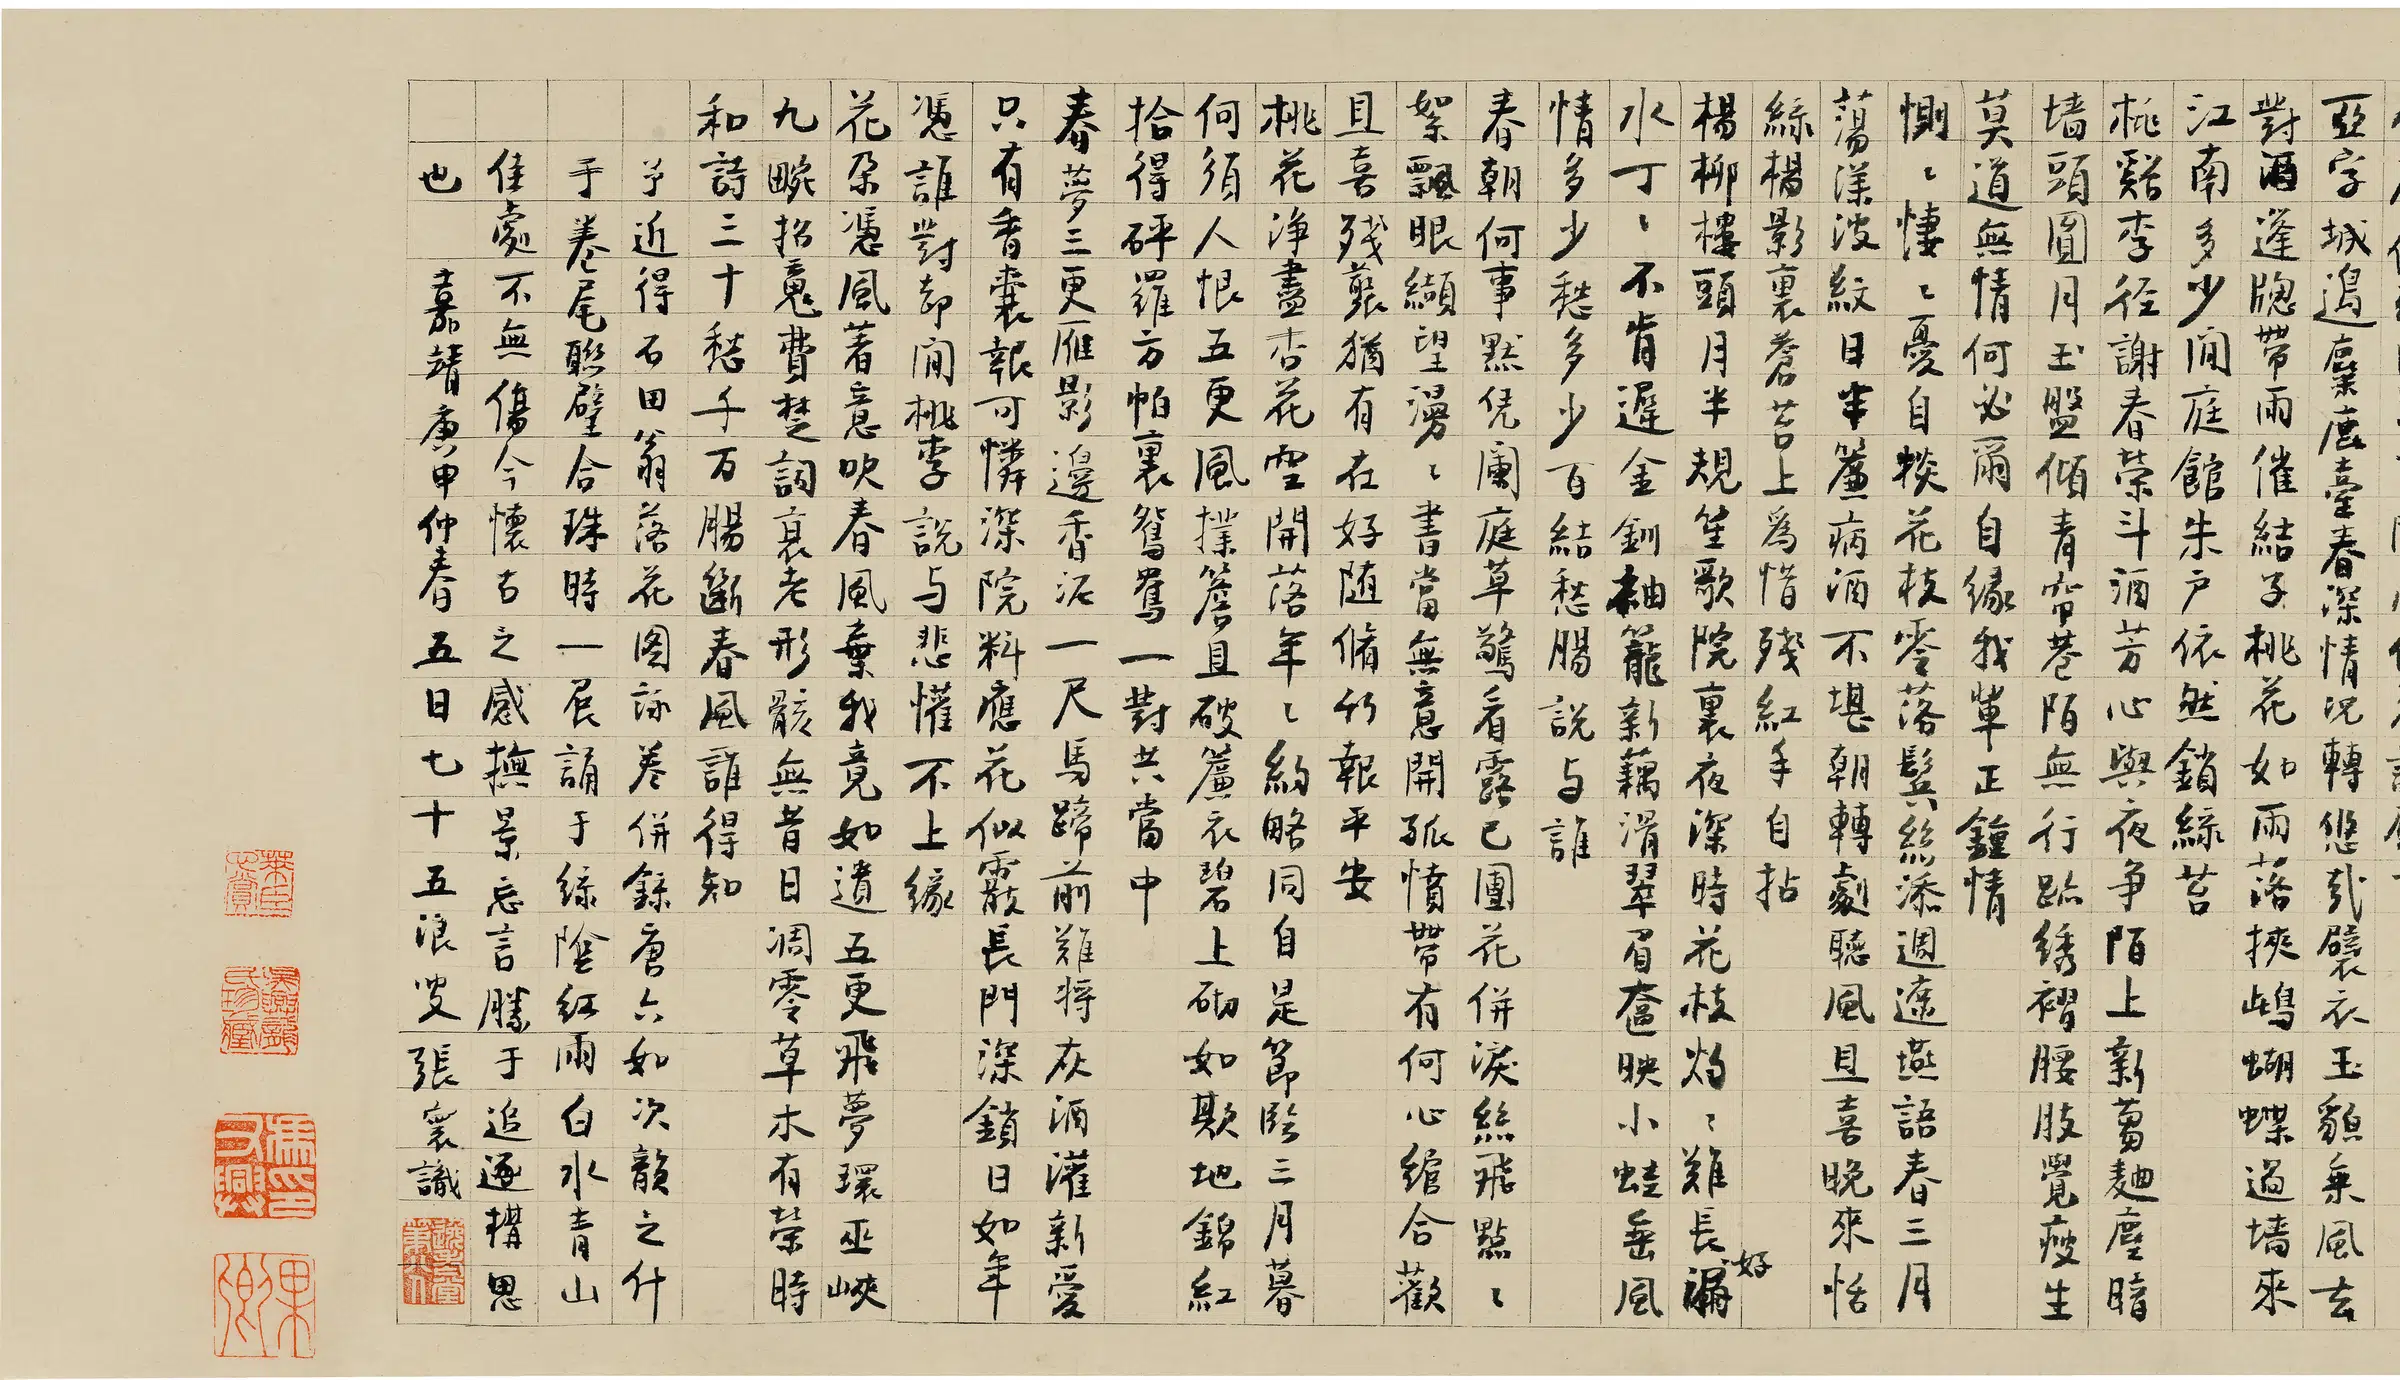 亞字城邊麋鹿臺春深情況轉悠哉襞衣玉貌乘風去
對酒蓬牕帶雨催結子桃花如雨落挾雌蝴蝶過墻來
江南多少閒庭館朱戶依然鎖綠苔
桃谿李徑謝春榮斗酒芳心與夜爭陌上新蒭麯塵暗
墻頭圓月玉盤傾青帘巷陌無行跡綉褶腰肢覺瘦生
莫道無情何必爾自緣我輩正鍾情
惻〻悽〻憂自惔花枝零落鬢絲添週遮燕語春三月
蕩漾波紋日半簾病酒不堪朝轉劇聽風且喜晚來恬
綠楊影裏蒼苔上爲惜殘紅手自拈
楊柳樓頭月半規笙歌院裏夜深時花枝灼〻難長好
水丁〻不肯遲金釧袖籠新藕滑翠眉奩映小蛙垂風
情多少愁多少百結愁腸說与誰
春朝何事默凭闌庭草驚看露已團花併淚絲飛點〻
絮飄眼纈望漫〻書當無意開孤憤帶有何心綰合歡
且喜殘蕤猶有在好隨脩竹報平安
桃花淨盡杏花空開落年〻約略同自是節臨三月暮
何須人恨五更風撲簷且破簾衣碧上砌如欺地錦紅
拾得砰羅方帕裏鴛鴦一對共當中
春夢三更雁影邊香泥一尺馬蹄前難將灰酒灌新愛
只有香囊報可憐深院料應花似霰長門深鎖日如年
憑誰對卻閒桃李說与悲懽不上緣
花朵憑風著意吹春風棄我竟如遺五更飛夢環巫峽
九畹招䰟費楚詞衰老形骸無昔日凋零草木有榮時
和詩三十愁千万腸斷春風誰得知
予近得石田翁落花图詠卷併錄唐六如次韻之什
于卷尾聯璧合珠時一展誦于綠陰紅雨白水青山
佳處不無傷今懷古之感撫景忘言勝于追逐構思
也 嘉靖庚申仲春五日七十五浪叟張寰識